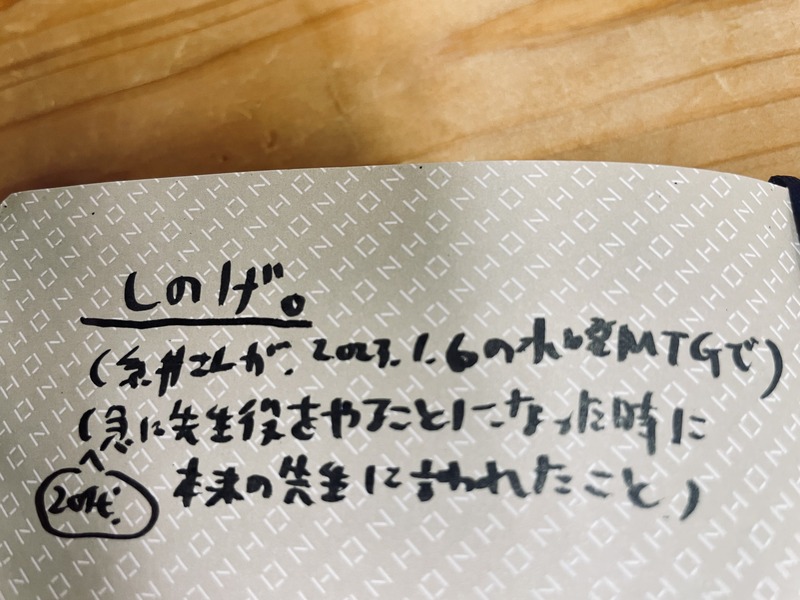 しのげ。
(糸井さんが、2023.1.6の水曜MTGで)
(急に先生役をやることになった時に
20代! 本来の先生に言われたこと)